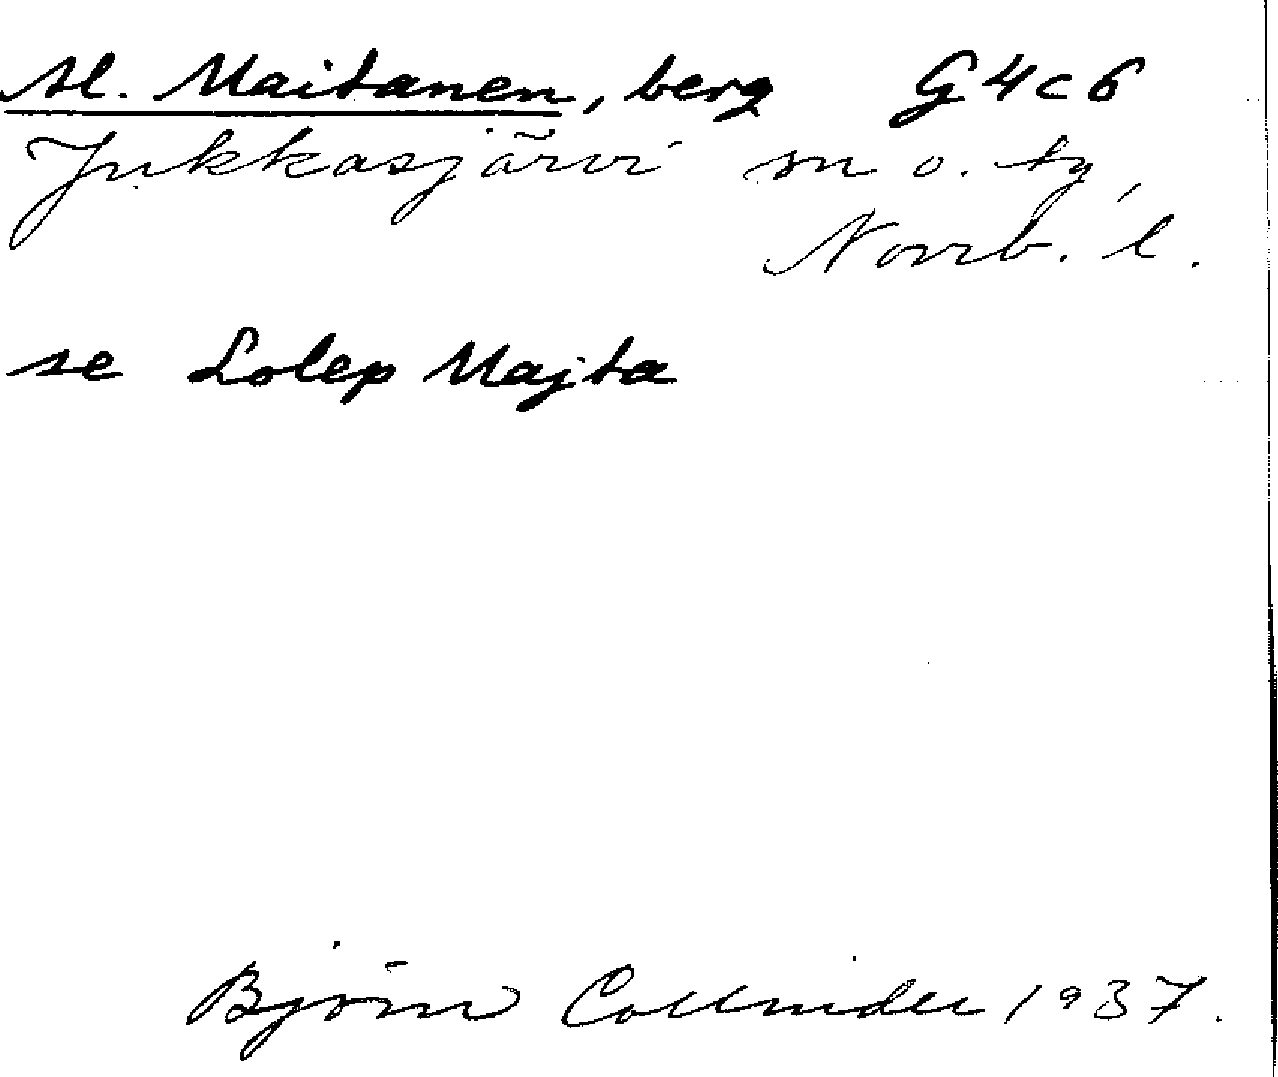 st. Maitanen, berg G4c6
Jukkasjärvi sn o. tg,
Norrb. l.
se Lolep Majta
Björn Collinder 1937.